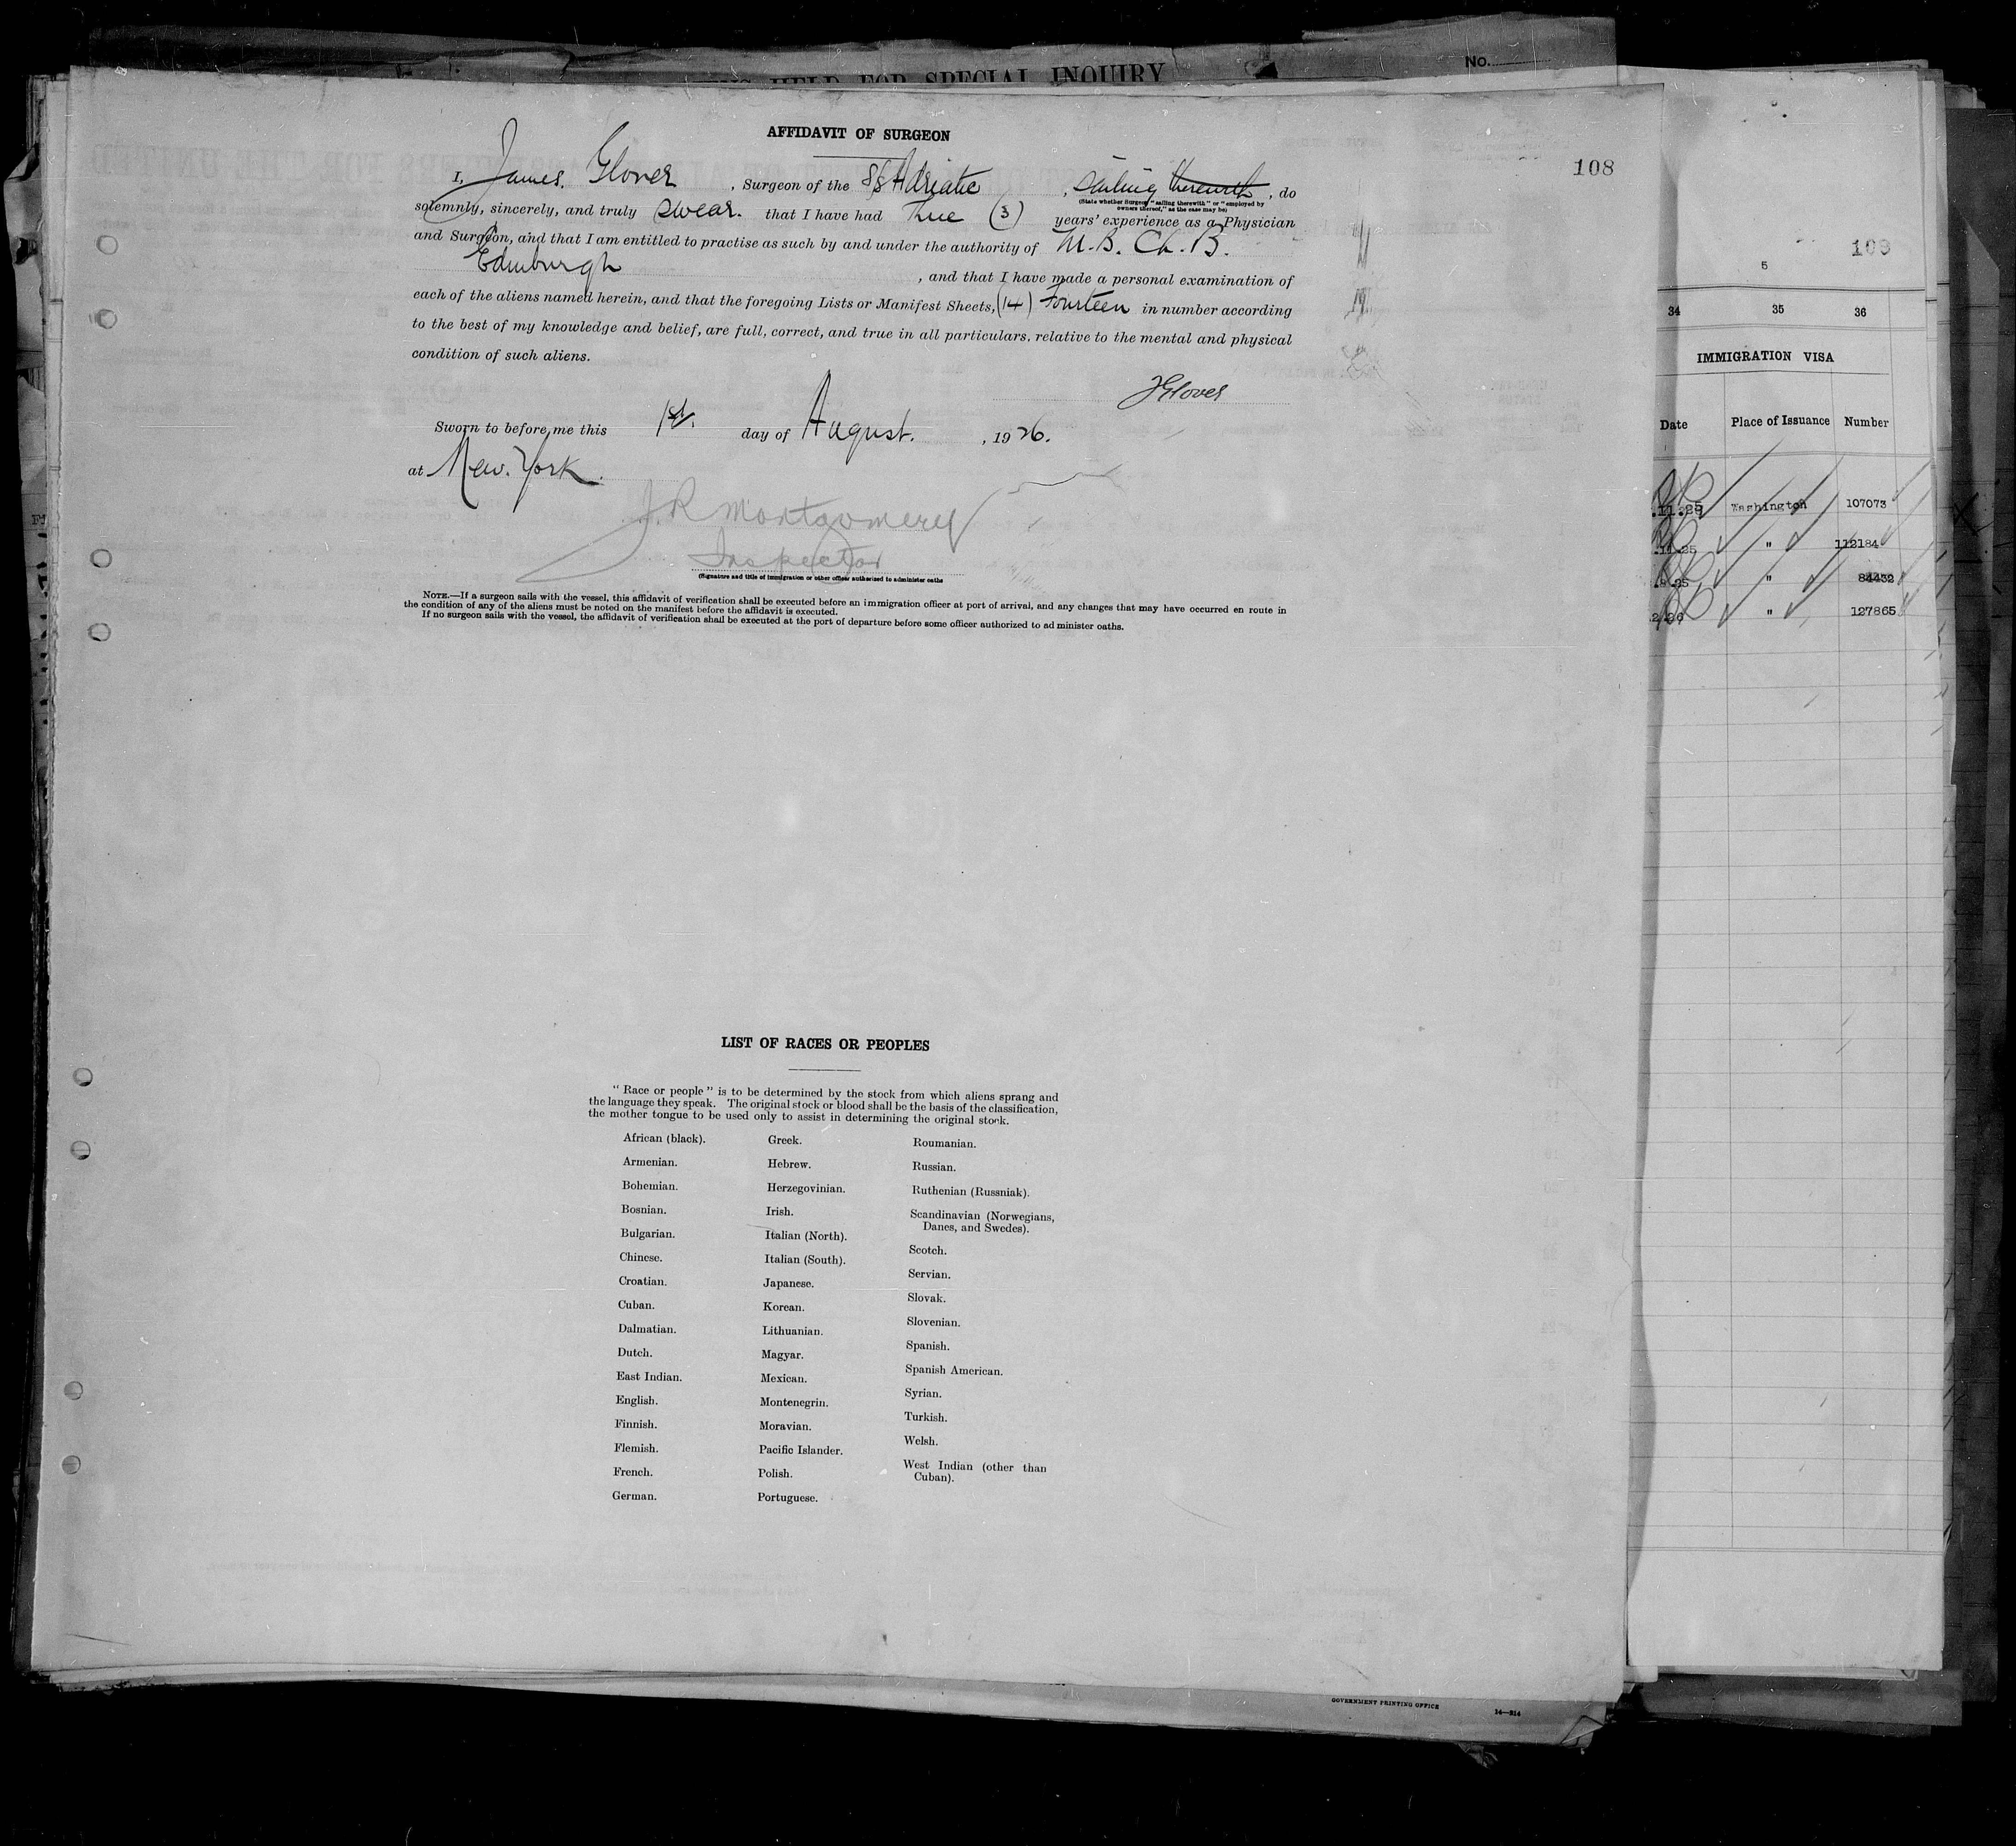 HELD FOR SPECIAL INQUIRY
No.
AFFIDAVIT OF SURGEON
108
I, James. Glover, Surgeon of the SS Adriatic, sailing therewith, do
(State whether Surgeon "sailing therewith" or "employed by
owners thereof," as the case may be)
solemnly, sincerely, and truly swear. that I have had (3) years' experience as a Physician
and Surgeon, and that I am entitled to practise as such by and under the authority of M.B. Ch. B.
Edinburgh, and that I have made a personal examination of
each of the aliens named herein, and that the foregoing Lists or Manifest Sheets, (14) Fourteen in number according
to the best of my knowledge and belief, are full, correct, and true in all particulars. relative to the mental and physical
condition of such aliens.
JGlover
Sworn to before me this 1st. day of August., 1926.
at New. York.
J. R Montgomery
Inspector
(Signature and title of immigration or other officer authorized to administer oaths
NOTE.—If a surgeon sails with the vessel, this affidavit of verification shall be executed before an immigration officer at port of arrival, and any changes that may have occurred en route in
the condition of any of the aliens must be noted on the manifest before the affidavit is executed.
If no surgeon sails with the vessel, the affidavit of verification shall be executed at the port of departure before some officer authorized to ad minister oaths.
LIST OF RACES OR PEOPLES
" Race or people " is to be determined by the stock from which aliens sprang and
the language they speak. The original stock or blood shall be the basis of the classification,
the mother tongue to be used only to assist in determining the original stock.
African (black).
Armenian.
Bohemian.
Bosnian.
Bulgarian.
Chinese.
Croatian.
Cuban.
Dalmatian.
Dutch.
East Indian.
English.
Finnish.
Flemish.
French.
German.
Greek.
Hebrew.
Herzegovinian.
Irish.
Italian (North).
Italian (South).
Japanese.
Korean.
Lithuanian.
Magyar.
Mexican.
Montenegrin.
Moravian.
Pacific Islander.
Polish.
Portuguese.
Roumanian.
Russian.
Ruthenian (Russniak).
Scandinavian (Norwegians,
Danes, and Swedes).
Scotch.
Servian.
Slovak.
Slovenian.
Spanish.
Spanish American.
Syrian.
Turkish.
Welsh.
West Indian (other than
Cuban).
GOVERNMENT PRINTING OFFICE
14—214
5
34 35 36
IMMIGRATION VISA
Date Place of Issuance Number
Washington 107073
" 112184
" 84432
" 127865